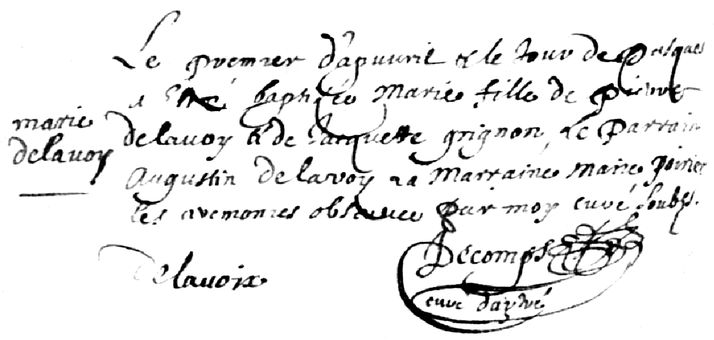 Le premier d'apvuril & le Jour de pasques
a esté baptisée Marie fille de pierre
marie
delavoy
delavoy & de Jacquette grignon, Le Parrain
Augustin Delavoy La Marraine Marie poirier
les ceremonies observee par moy curé soubs.
Decomps
Delavoix
curé d'aytré